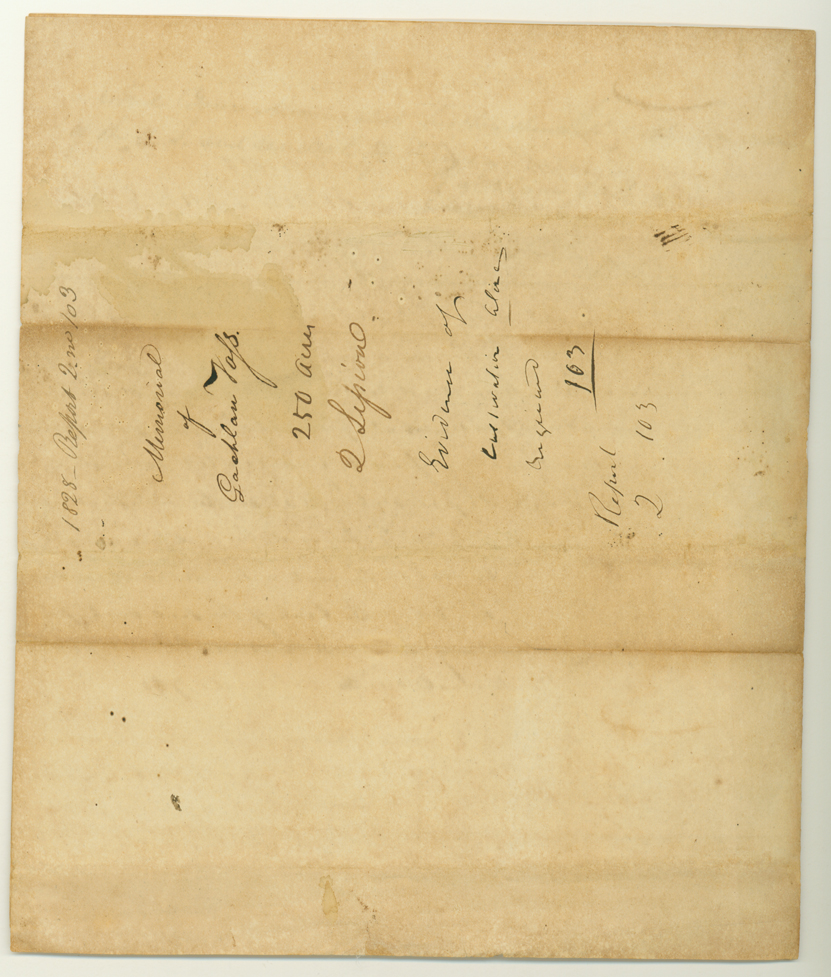 1828 - Report 2 no 103
Memorial
of
Lachlan Voss.
250 acres
2 Lessions
Evidence of
Cultivation alone
required
103
Report
2 103